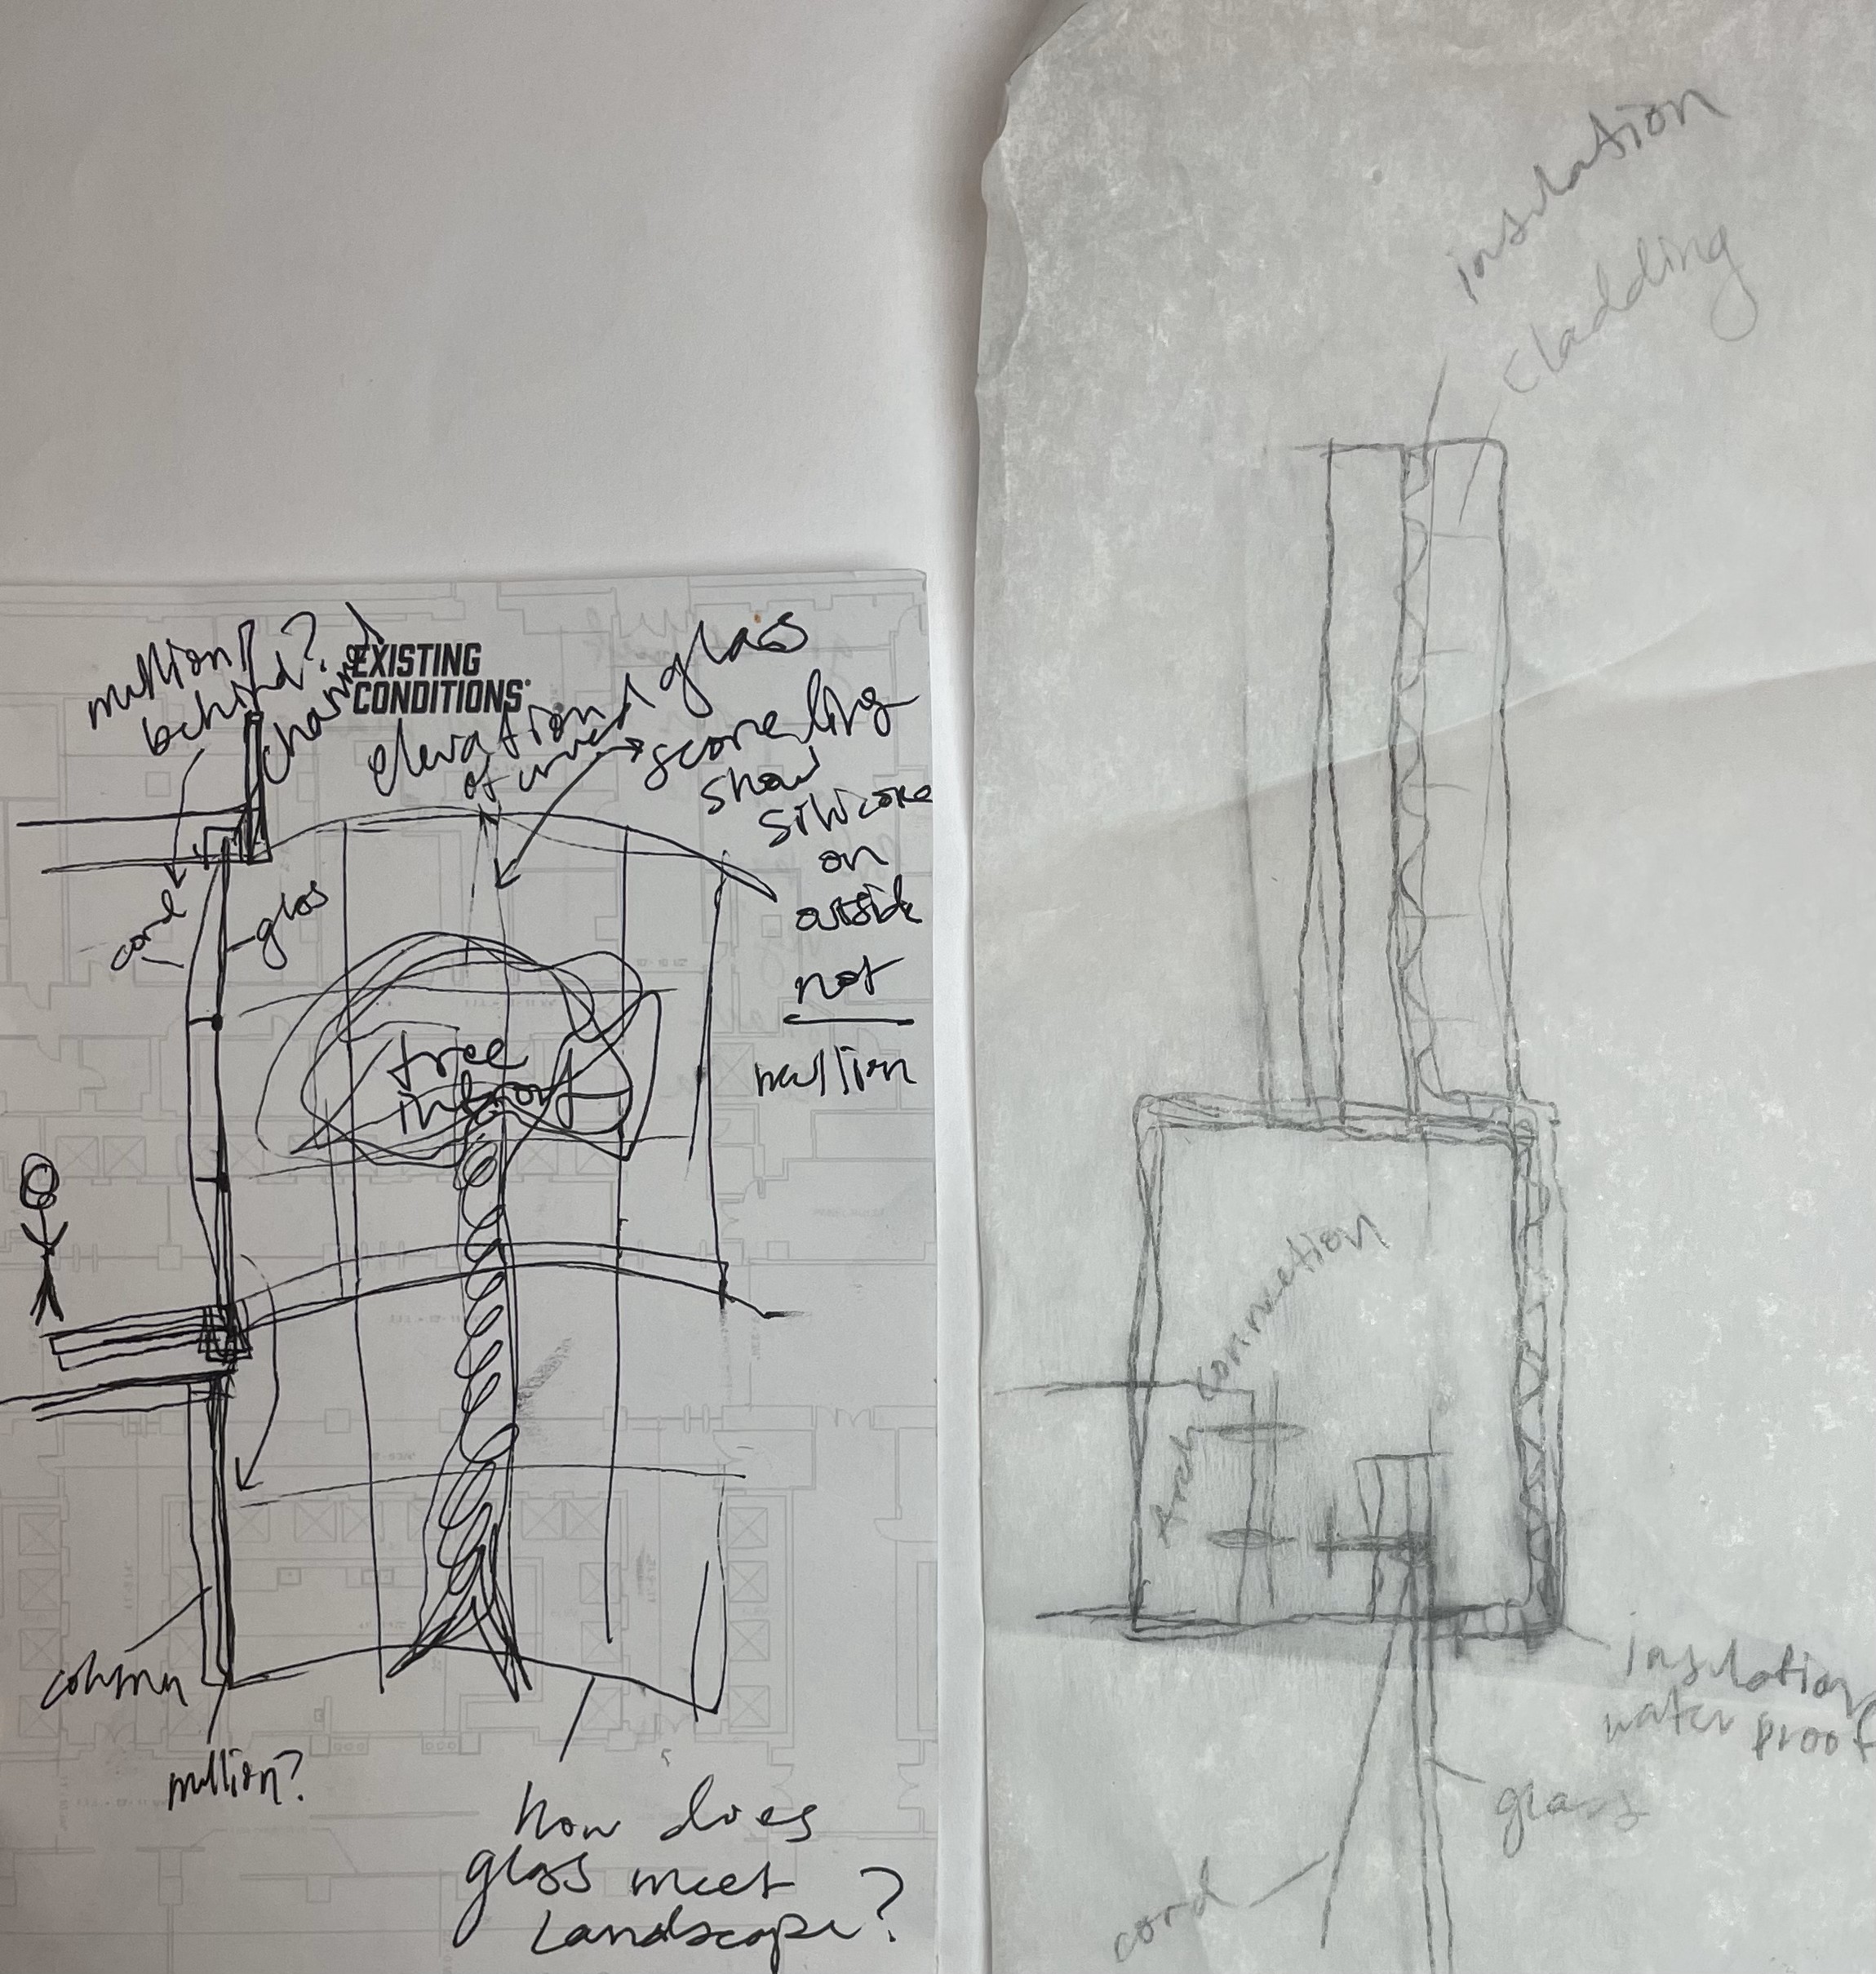 mullion
behind?
channel
EXISTING
CONDITIONS
elevation
of curved glass
scorneling
show
silicone
on
outside
not
mullion
cord
glass
tree
in front
column
mullion?
how does
glass meet
Landscape?
insulation
cladding
connection
insulation
water proof
glass
cord